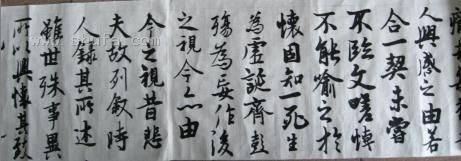 人興感之由若
合一契未嘗
不臨文嗟悼
不能喻之於
懷固知一死生
為虛誕齊彭
殤為妄作後
之視今亦由
今之視昔悲
夫故列敘時
人錄其所述
雖世殊事異
所以興懷其致